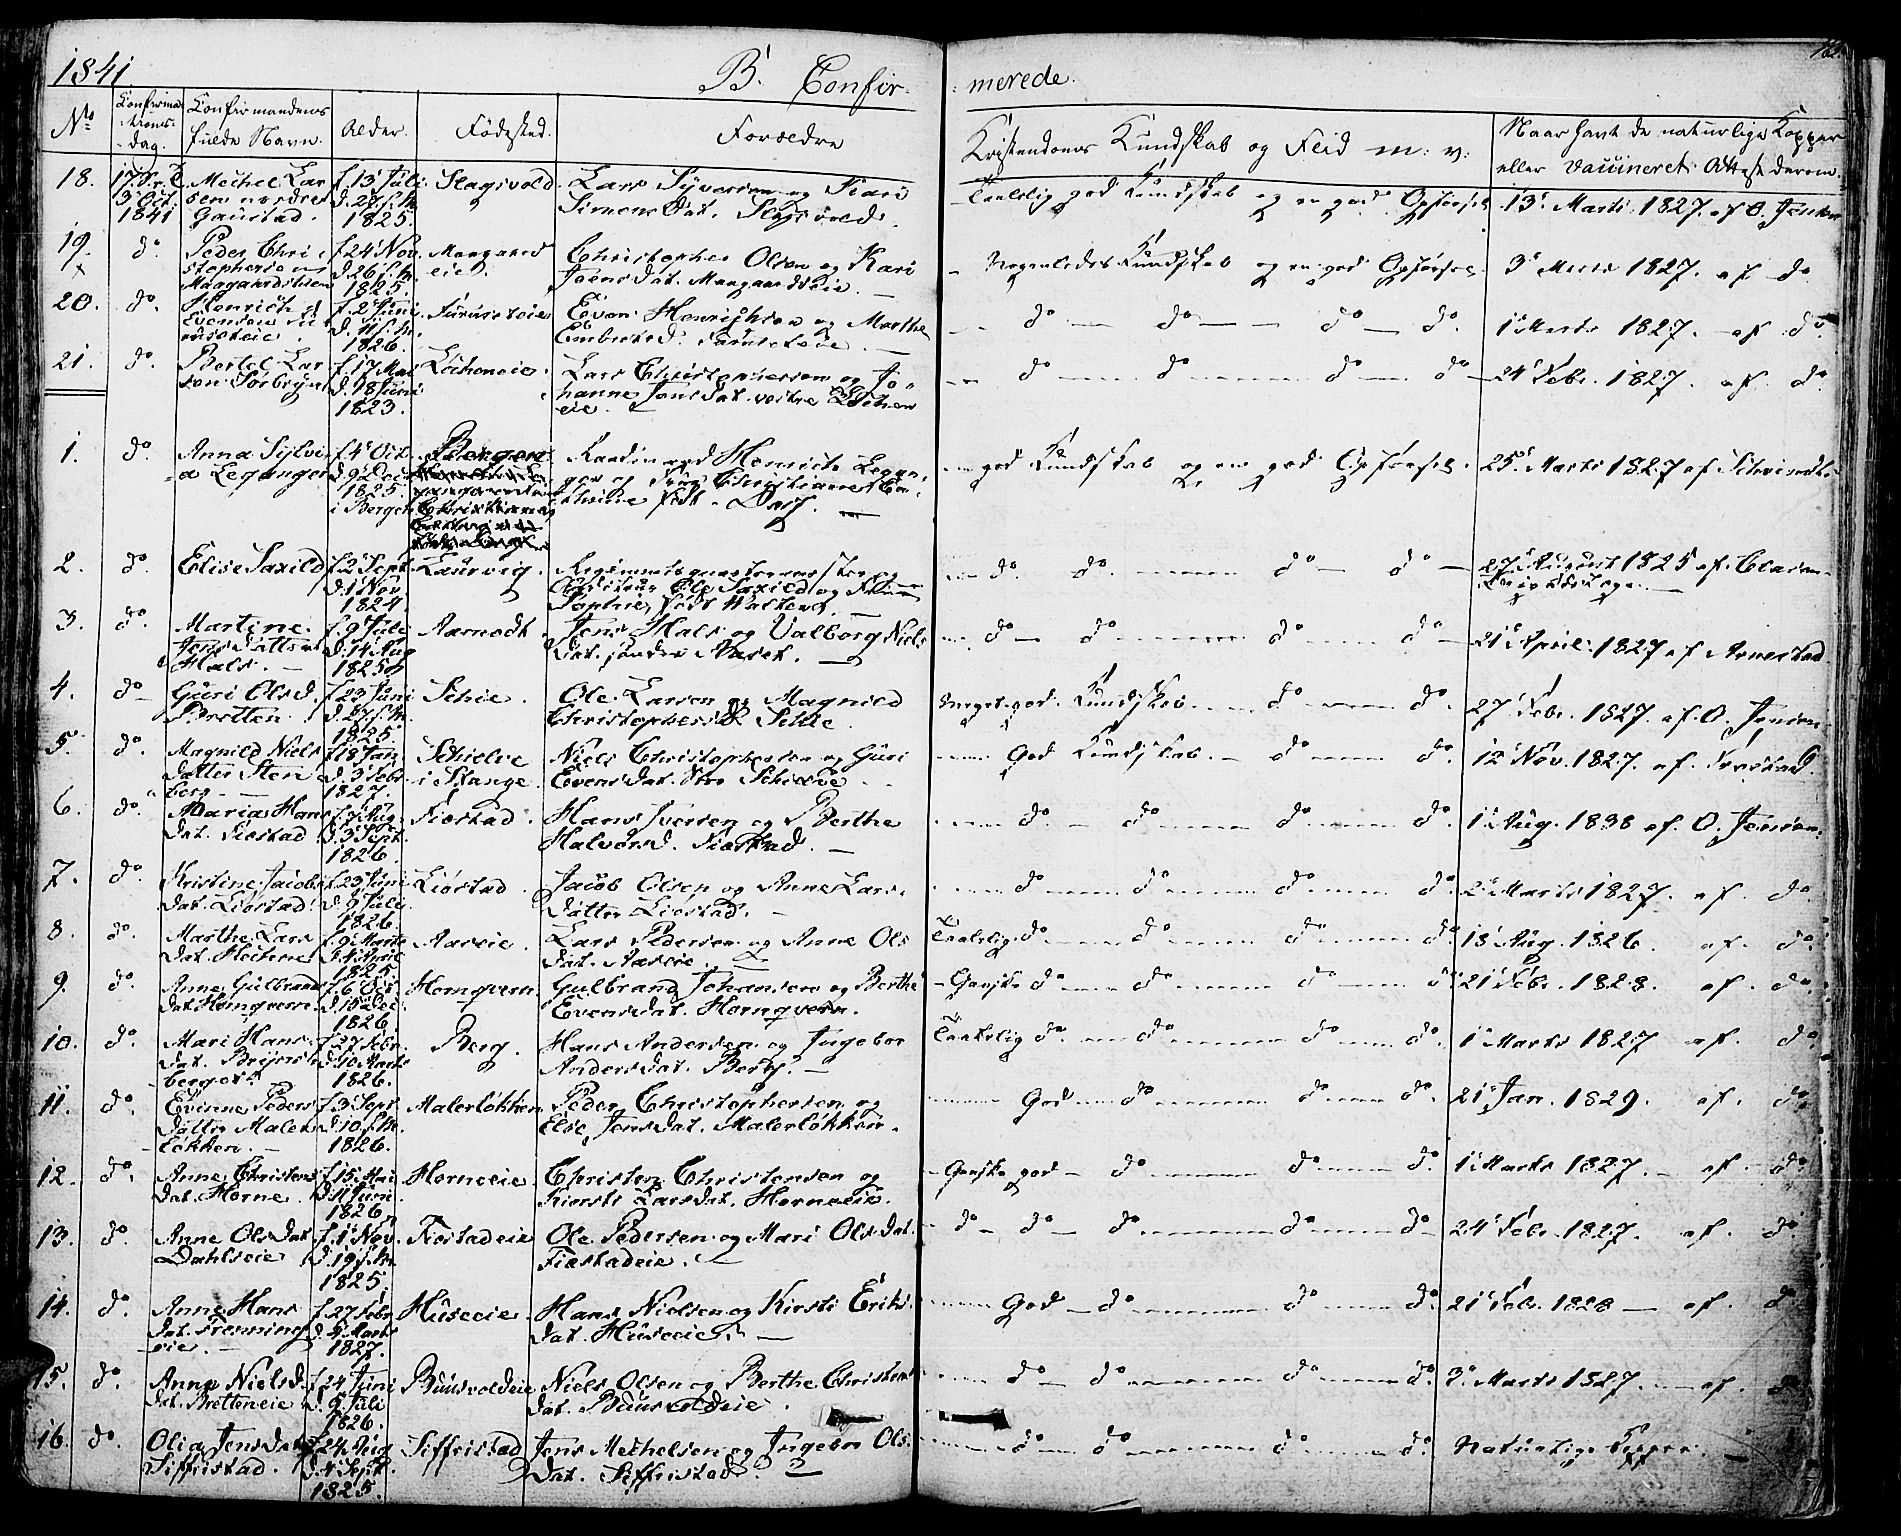 1841
B. Confir-
merede.
No
Confirma-
tions-
dag.
Confirmandens
fulde Navn.
Alder.
Fødested.
Forældre
Kristendoms Kundskab og Flid m: v:
Naar havt de naturlige Kopper
eller Vaccineret. Attest derom.
18.
3 Oct.
1841
Mechel Lar
sen nordre
Gaustad.
f. 13 Juli
D. 24 s. M.
1825.
Slagsvold.
Lars Syversen og Kari
Simens Dat. Slagsvold.
Taalelig god Kundskab og en god Opførsel
13 Marts 1827. af O. Jensen
19.
x
do.
Peder Chri
stophersen
Maagaardseien
f. 24 Nov.
D. 26 s. M.
1825.
Maagaard
eie.
Christopher Olsen og Kari
Jens Dat. Maagaardseie.
Nogenledes Kundskab og en god Opførsel.
3 Marts 1827. af do
20.
do.
Henrich
Evensen
f. 2 Juni
D. 11 s. M.
1826.
Even Henrichsen og Marthe
Embretsd.
do do do do.
1 Marts 1827. af do
21.
do.
Bertel Lar
sen Sørbryn
f. 17 Mai
D. 18 Juni
1823.
Locheneie.
Lars Christophersen og Jo-
hanne Jens Dat. vestre Lochen
eie.
do do do do
24 Febr. 1827. af. do.
1.
do.
Anna Sylvi
a Leganger
f. 4 Oct.
D. 9 Dec.
1825.
i Bergen
Bergen.
Kandi med Henrich Legan-
ger og Christiane
født Dass.
god Kundskab og en god Opførsel.
25 Marts 1827 af
2.
do.
Elise Saxild
f. 2 Sept.
D. 1 Nov.
1824.
Laurvig.
Regimentsqvarteermester og
Ole Saxild og
Sophie, født
do. do. do do
27 August 1825 af.
3.
do.
Martine
Jens Datter
Hals.
f. 9 Juli
D. 14 Aug
1825.
Aamodt
Jens Hals og Valborg Niels
Dat.
do do do do
21 April. 1827 af Arnestad
4.
do
Guri Olsd.
Bretten.
f. 23 Juni
D. 27 s. M.
1825
Schie.
Ole Larsen og Magnild
Christophersd. Schie.
Meget god Kundskab do do.
27 Febr. 1827. af. O. Jensen.
5.
do.
Magnild Niels
datter Sten
berg.
f. 18 Jan
D. 3 Febr
1827.
Schielve
i Stange.
Niels Christophersen og Guri
Evens Dat. Schielve
God Kundskab. do do.
12 Nov. 1827. af.
6.
do.
Maria Hans
Dat. Fiøstad
f. 7 Aug
D. 3 Sept.
1826.
Fiøstad.
Hans Iversen og Berthe
Halvorsd. Fiøstad.
do do do do.
1 Aug. 1838 af. O. Jensen.
7.
do.
Kristine Jacobs
Dat. Liøstad.
f. 23 Juni
D. 9 Juli
1826
Liøstad.
Jacob Olsen og Anne Lars-
Datter Liøstad.
do do do do.
2 Marts 1827. af. do.
8.
do.
Marthe Lars
Dat.
f. 9 Marts
D. 4 April
1825
Aaseie.
Lars Pedersen og Anne Ols
Dat. Aaseie.
Taalelig do do do do.
18 Aug. 1826. af. do.
9.
do.
Anne Gulbrand
Dat. Homqvern
f. 6 Oct
D. 15 Dec
1826.
Homqvern.
Gulbrand Johansen og Berthe
Evens Dat. Homqvern.
Ganske do do do do
21 Febr. 1828. af. do.
10.
do.
Mari Hans
Dat.
f. 27 Febr.
D. 10 Marts
1826.
Berg.
Hans Andersen og Ingebor
Anders Dat. Berg.
Taalelig do. do do do.
1 Marts 1827 af. do.
11.
do.
Evinne Peders
datter Maler
løkken.
f. 3 Sept
D. 10 s. M.
1826.
Malerløkken
Peder Christophersen og
Else Jens Dat. Malerløkken.
God do do do.
21 Jan. 1829. af. do.
12.
do.
Anne Christens
Dat. Horne.
f. 15 Mai
D. 11 Juni
1826
Horneeie.
Christen Christensen og
Kiersti Lars Dat. Horneeie.
Ganske god do do do.
1 Marts 1827. af. do.
13.
do.
Anne Ols Dat
Dahlseie
f. 1 Nov.
D. 19 s. M.
1825.
Fiøstadeie
Ole Pedersen og Mari Ols Dat.
Fiøstadeie.
do do do do do
24 Febr. 1827. af. do.
14.
do.
Anne Hans
Dat.
eie.
f. 27 Febr
D. 4 Marts
1827.
Huseeie.
Hans Nielsen og Kirsti Eriks
Dat. Huseeie.
God do do do.
21 Feb. 1828 af. do
15.
do.
Anne Nielsd.
Dat. Bretteneie
f. 24 Juni
D. 9 Juli
1826.
Buusvoldeie
Niels Olsen og Berthe Christens
Dat. Buusvoldeie.
do do do do.
3 Marts 1827. af. do
16.
do.
Olia Jens Dat
Siffristad.
f. 24 Aug
D. 4 Sept.
1825.
Siffristad
Jens Mechelsen og Ingebor Ols.
Dat. Siffristad.
do do do do.
Naturlige Kopper.